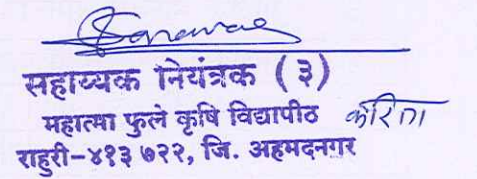 सहाय्यक नियंत्रक (३)
महात्मा फुले कृषि विद्यापीठ करिता
राहुरी-४१३ ७२२, जि. अहमदनगर